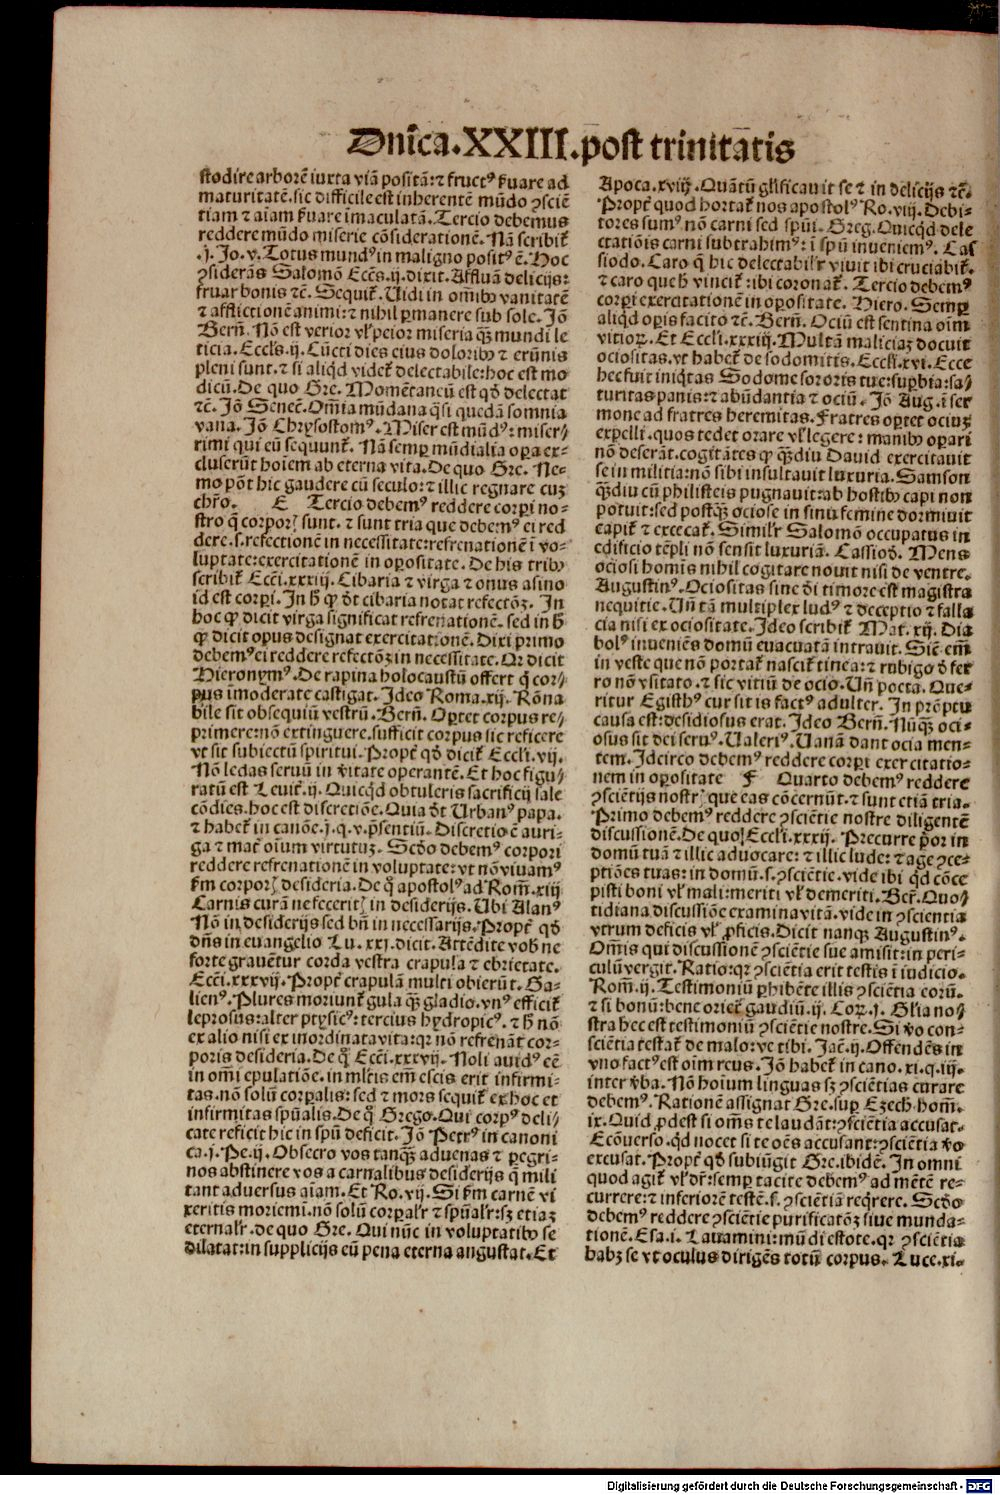 Dnica.XXIII.post trinitatis
stodire arborē iuxta viā positā:⁊ fructꝰ ẜuare ad
maturitatē.sic difficile est inherentē mūdo ꝯsciē
tiam ⁊ aīam ẜuare īmaculatā.Tercio debemus
reddere mūdo miserie cōsiderationē.Nā scribit̄
.j.Jo.v.Totus mundꝰ in maligno positꝰ ē.Hoc
ꝯsiderās Salomō Eccs̄.ij.dixit.Affluā delicijs:
fruar bonis ⁊c̄.Sequit̄.Uidi in om̄ibꝰ vanitatē
⁊ afflictionē animi:⁊ nihil ꝑmanere sub sole.Jō
Bern̄.Nō est verior vl̓ peior miseria qȝ̄ mundi le
ticia.Eccls̄.ij.Cūcti dies eius doloribꝰ ⁊ erūnis
pleni sunt.⁊ si aliqd̄ videt̄ delectabile:hoc est mo
dicū.De quo Gre.Momētaneū est qd̓ delectat
⁊c̄.Jō Senec̄.Om̄ia mūdana q̄si quedā somnia
vana.Jō Chrysostomꝰ.Miser est mūdꝰ:miser⸗
rimi qui eū sequunt̄.Nā semꝑ mūdialia oꝑa ex⸗
cluserūt hoīem ab eterna vita.De quo Gre.Ne⸗
mo pōt hic gaudere cū seculo:⁊ illic regnare cuȝ
chr̄o. E Tercio debemꝰ reddere corꝑi no⸗
stro q̄ corporꝭ sunt.⁊ sunt tria que debemꝰ ei red
dere.s.refectionē in necessitate:refrenationē ī vo⸗
luptate:exercitationē in oꝑositate.De his tribꝰ
scribit̄ Ecci̓.xxxiij.Cibaria ⁊ virga ⁊ onus asino
id est corꝑi.In h̓ ꝙ d̓t cibaria notat refectōȝ.In
hoc ꝙ dicit virga significat refrenationē.sed in h̓
ꝙ dicit opus designat exercitationē.Dixi primo
debemꝰ ei reddere refectōȝ in necessitate.Qr̄ dicit
Hieronymꝰ.De rapina holocaustū offert q̄ cor⸗
pus īmoderate castigat.Ideo Roma.xij.Rōna
bile sit obsequiū vestrū.Bern̄.Oꝑtet corpus re⸗
primere:nō extinguere.sufficit corpus sic reficere
vt sit subiectū spiritui.Propt̄ qd̓ dicit̄ Eccli̓.vij.
Nō ledas seruū in v̓itate operantē.Et hoc figu⸗
ratū est Leuit̄.ij.Quicqd̄ obtuleris sacrificij sale
cōdies.hoc est discretiōe.Quia d̓t Urbanꝰ papa.
⁊ habet̄ in canōe.j.q.v.p̄sentiū.Discretio ē auri⸗
ga ⁊ mat̄ oīum virtutuȝ.Scd̓o debemꝰ corpori
reddere refrenationē in voluptate:vt nō viuamꝰ
ẜm corporꝭ desideria.De q̄ apostolꝰ ad Rom̄.xiij
Carnis curā ne feceritꝭ in desiderijs.Ubi Alanꝰ
Nō in desiderijs sed bn̄ in necessarijs.Propt̄ qd̓
dn̄s in euangelio Lu.xxi.dicit.Attēdite vob̓ ne
forte grauētur corda vestra crapula ⁊ ebrietate.
Ecci̓.xxxvij.Propt̄ crapulā multi obierūt.Ga⸗
lienꝰ.Plures moriunt̄ gula qȝ̄ gladio.vnꝰ efficit̄
leprosus:alter ptysicꝰ:tercius hydropicꝰ.⁊ h̓ nō
ex alio nisi ex inordinata vita:qr̄ nō refrenāt cor⸗
poris desideria.De q̄ Ecci̓.xxxvij.Noli auidꝰ eē
in om̄i epulatiōe.in ml̓tis em̄ escis erit infirmi⸗
tas.nō solū corꝑalis:sed ⁊ mors sequit̄ ex hoc et
infirmitas spūalis.De q̄ Grego.Qui corpꝰ deli⸗
cate reficit hic in spū deficit.Jō Petrꝰ in canoni
ca.j.Pe.ij.Obsecro vos tanqȝ̄ aduenas ⁊ ꝑegri⸗
nos abstinere vos a carnalibus desiderijs q̄ mili
tant aduersus aīam.Et Ro.vij.Si ẜm carnē vi
xeritis moriemi.nō solū corꝑalr̄ ⁊ spūalr̄:sȝ etiaȝ
eternalr̄.de quo Gre.Qui nūc in voluptatibꝰ se
dilatat:in supplicijs eū pena eterna angustat.Et
Apoca.xviij.Quātū gl̓ificauit se ⁊ in delicijs ⁊c̄.
Propt̄ quod hortat̄ nos apostolꝰ Ro.viij.Debi⸗
tores sumꝰ nō carni sed spūi.Greg.Quicqd̄ dele
ctatiōis carni subtrahimꝰ:ī spū inueniemꝰ.Cas
siodo.Caro q̄ hic delectabilr̄ viuit ibi cruciabit̄.
⁊ caro que h̓ vincit̄:ibi coronat̄.Tercio debemꝰ
corꝑi exercitationē in oꝑositate.Hiero.Semꝑ
aliqd̄ oꝑis facito ⁊c̄.Bern̄.Ociū est sentina oīm
vitioꝝ.Et Eccli̓.xxxiij.Multā maliciaȝ docuit
ociositas.vt habet̄ de sodomitis.Eccli̓.xvi.Ecce
hec fuit iniq̄tas Sodome sororis tue:suꝑbia:sa⸗
turitas panis:⁊ abūdantia ⁊ ociū.Jō Aug.ī ser
mone ad fratres heremitas.Fratres oꝑtet ociuȝ
expelli.quos tedet orare vl̓ legere:manibꝰ oꝑari
nō deserāt.cogitātes ꝙ qȝ̄diu David exercitauit
se in militia:nō sibi insultauit luxuria.Samson
qȝ̄diu cū philisteis pugnauit:ab hostibꝰ capi non
potuit:sed postqȝ̄ ociose in sinu femine dormiuit
capit̄ ⁊ excecat̄.Similr̄ Salomō occupatus in
edificio tēpli nō sensit luxuriā.Cassiod̓.Mens
ociosi homīs nihil cogitare nouit nisi de ventre.
Augustinꝰ.Ociositas sine d̓i timore est magistra
nequitie.Un̄ tā multiplex ludꝰ ⁊ deceptio ⁊ falla
cia nisi ex ociositate.Ideo scribit̄ Mat̄.xij.Dia
bolꝰ inueniēs domū euacuatā intrauit.Sic em̄
in veste que nō portat̄ nascit̄ tinea:⁊ rubigo d̓ fer
ro nō vsitato.⁊ sic vitiū de ocio.Un̄ poeta.Que⸗
ritur Egisthꝰ cur sit is factꝰ adulter.In prōptu
causa est:desidiosus erat.Ideo Bern̄.Nūqȝ̄ oci⸗
osus sit dei seruꝰ.Ualeriꝰ.Uanā dant ocia men⸗
tem.Idcirco debemꝰ reddere corꝑi exercitatio⸗
nem in oꝑositate F Quarto debemꝰ reddere
ꝯsciētijs nostrꝭ que eas cōcernūt.⁊ sunt etiā tria.
Primo debemꝰ reddere ꝯsciētie nostre diligentē
discussionē.De quo Eccli̓.xxxij.Precurre p̄or in
domū tuā ⁊ illic aduocare:⁊ illic lude:⁊ age ꝯce⸗
ptiōes tuas:in domū.s.ꝯsciētie.vide ibi qd̄ cōce
pisti boni vl̓ mali:meriti vl̓ demeriti.Ber̄.Quo⸗
tidiana discussiōe examina vitā.vide in ꝯscientia
vtrum deficis vl̓ ꝓficis.Dicit nanqȝ Augustinꝰ.
Om̄is qui discussionē ꝯsciētie sue amisit:in peri⸗
culū vergit.Ratio:qr̄ ꝯsciētia erit testis ī iudicio.
Rom̄.ij.Testimoniū ꝑhibēte illis ꝯsciētia eorū.
⁊ si bonū:bene oriet̄ gaudiū.ij.Coꝝ.j.Glia no⸗
stra hec est testimoniū ꝯsciētie nostre.Si v̓o con⸗
sciētia testat̄ de malo:ve tibi.Jac̄.ij.Offendēs in
vno factꝰ est oīm reus.Jō habet̄ in cano.xi.q.iij.
inter v̓ba.Nō hoīum linguas sȝ ꝯsciētias curare
debemꝰ.Rationē assignat Gre.suꝑ Ezech hom̄.
ix.Quid ꝓdest si om̄s te laudāt:ꝯsciētia accusat.
Ecōuerso.qd̄ nocet si te oēs accusant:ꝯsciētia v̓o
excusat.Propt̄ qd̓ subiūgit Gre.ibidē.In omni
quod agit̄ vl̓ dr̄:semꝑ tacite debemꝰ ad mētē re⸗
currere:⁊ inferiorē testē.s.ꝯsciētiā reqrere.Scd̓o
debemꝰ reddere ꝯsciētie purificatōȝ siue munda⸗
tionē.Esa.i.Lauamini:mūdi estote.qr̄ ꝯsciētia
habȝ se vt oculus dirigēs totū corpus.Luce.xi.
Digitalisierung gefördert durch die Deutsche Forschungsgemeinschaft - DFG